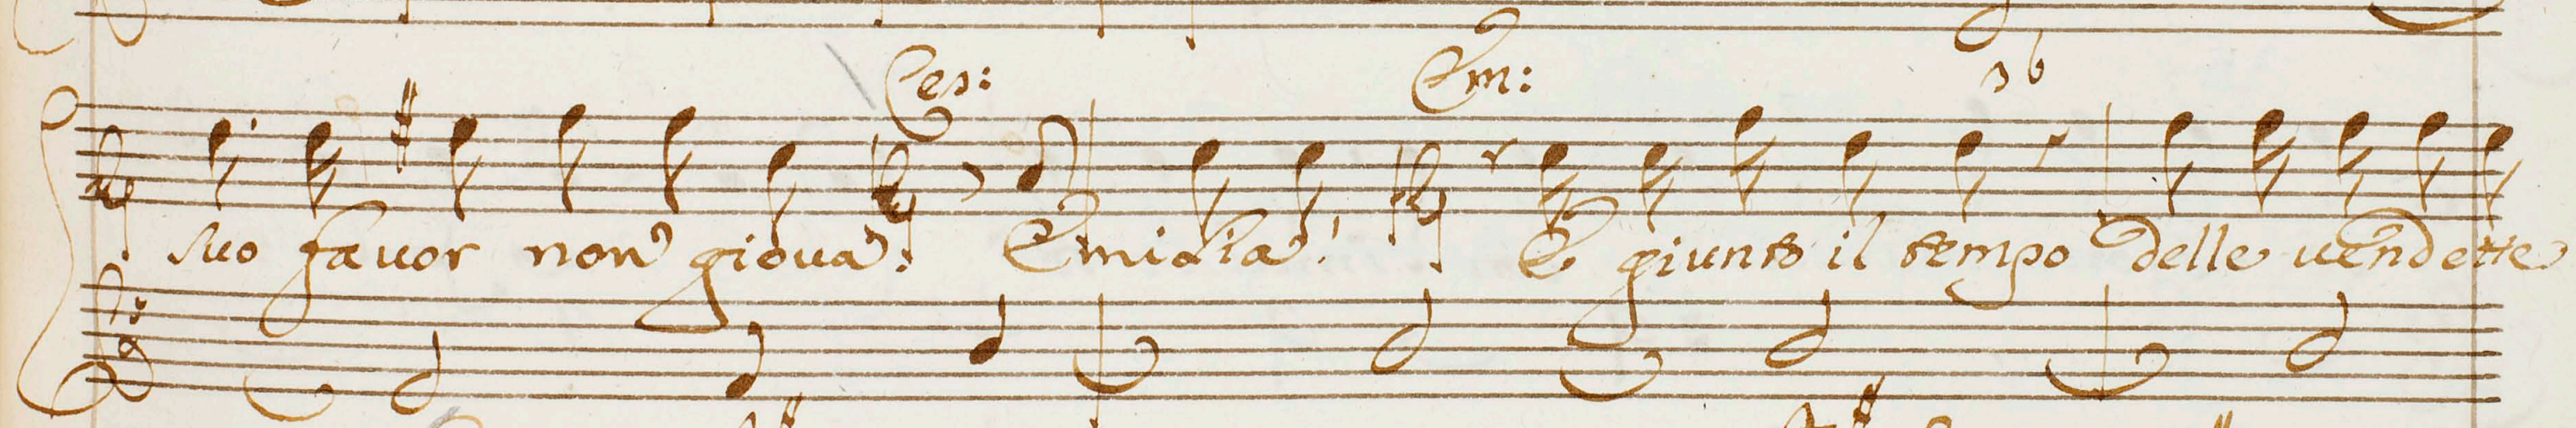 Ces: Em:
suo favor non giova. Emidia! E giunto il tempo delle vendette